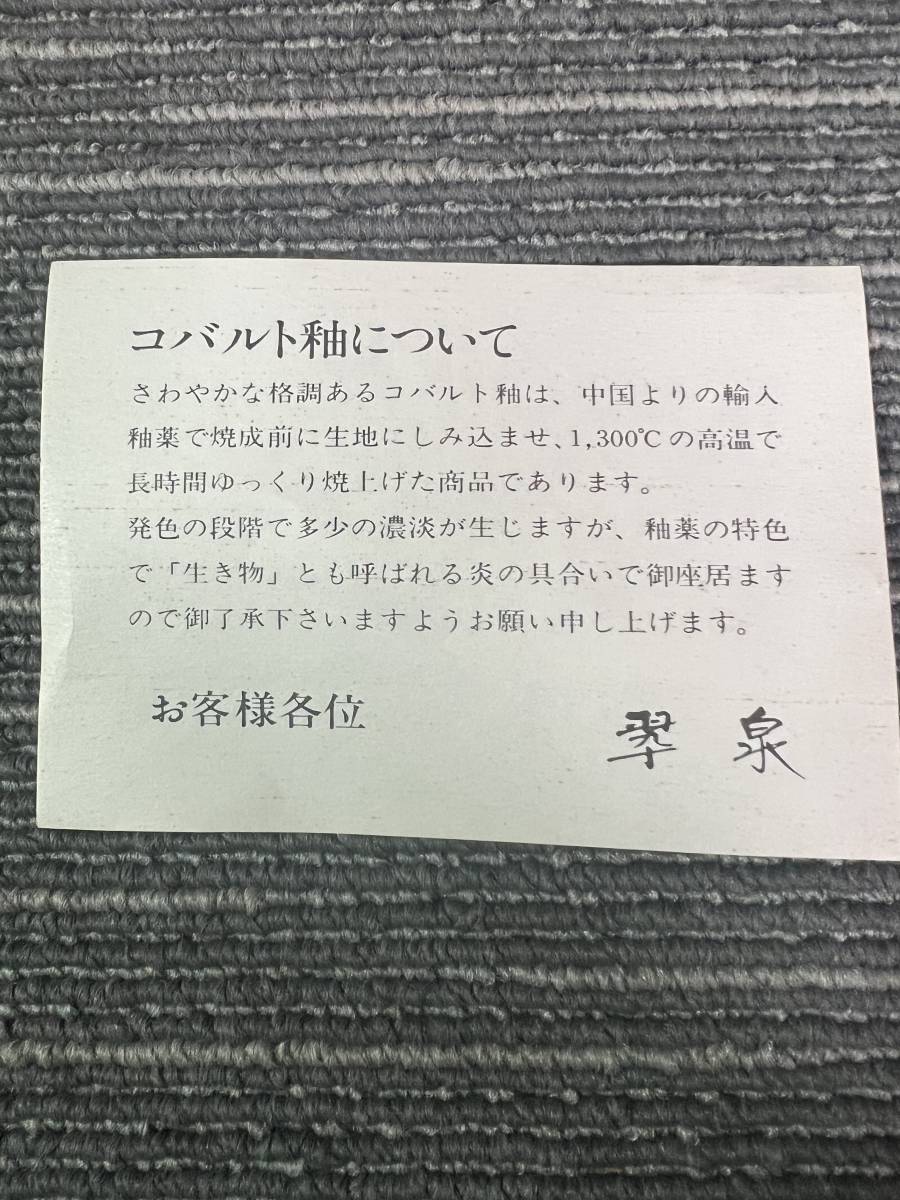 コバルト釉について
さわやかな格調あるコバルト釉は、中国よりの輸入
釉薬で焼成前に生地にしみ込ませ、1,300℃の高温で
長時間ゆっくり焼上げた商品であります。
発色の段階で多少の濃淡が生じますが、釉薬の特色
で「生き物」とも呼ばれる炎の具合いで御座居ます
ので御了承下さいますようお願い申し上げます。
お客様各位
翠泉